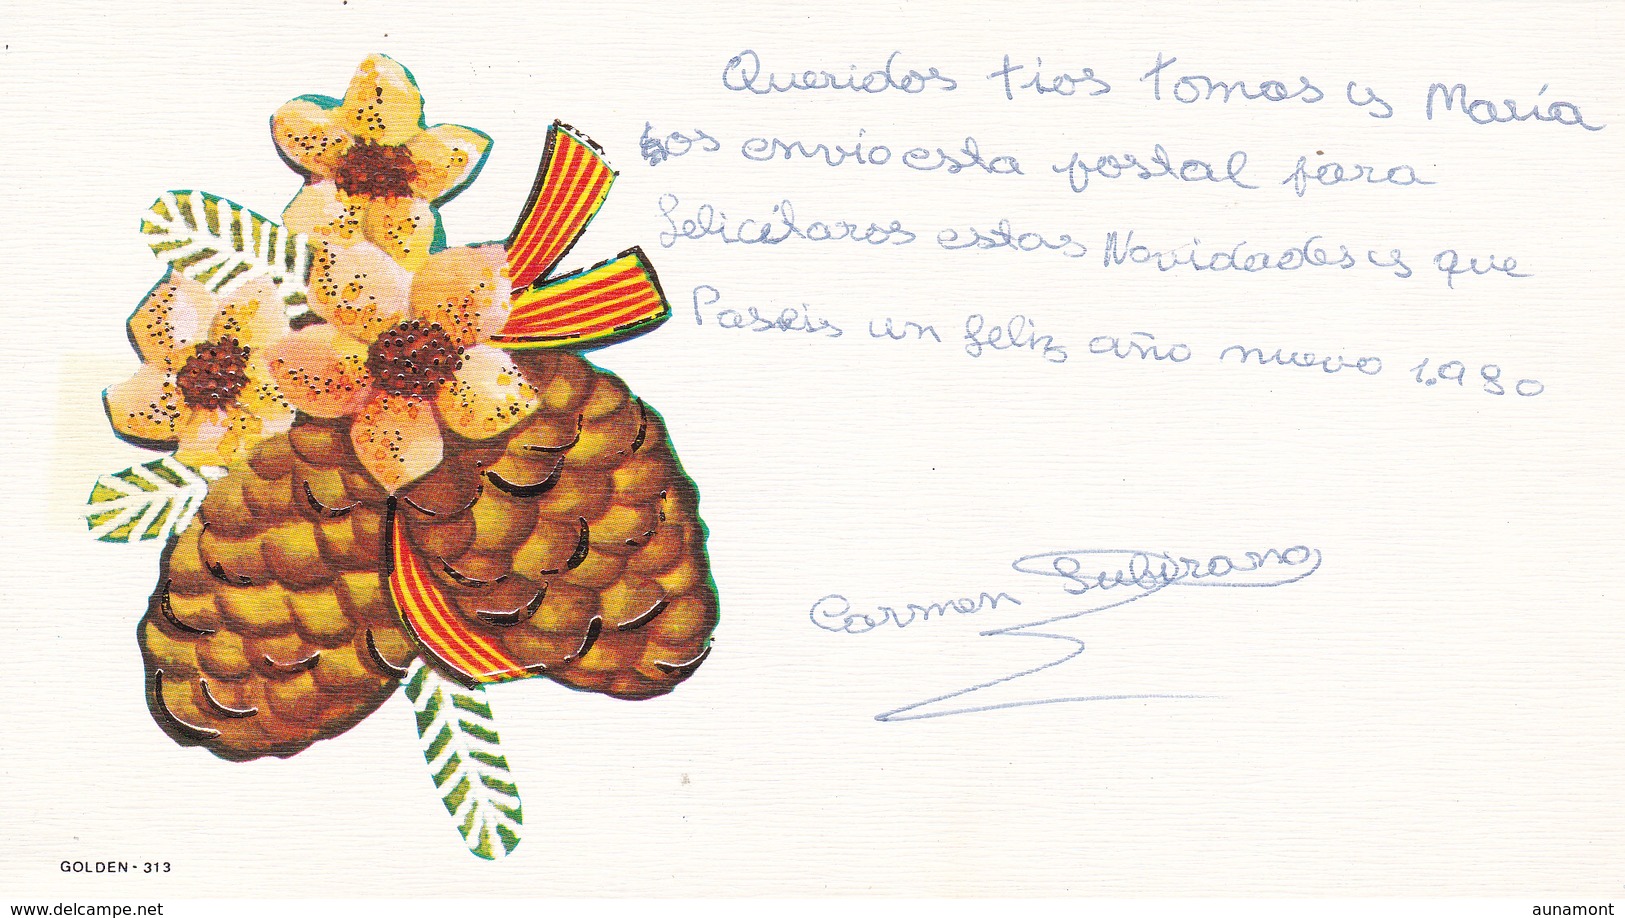 Queridos tios Tomas y María
os envio esta postal para
felicitaros estas Navidades y que
Paseis un feliz año nuevo 1.980
Carmen Subirano
GOLDEN - 313
www.delcampe.net
aunamont